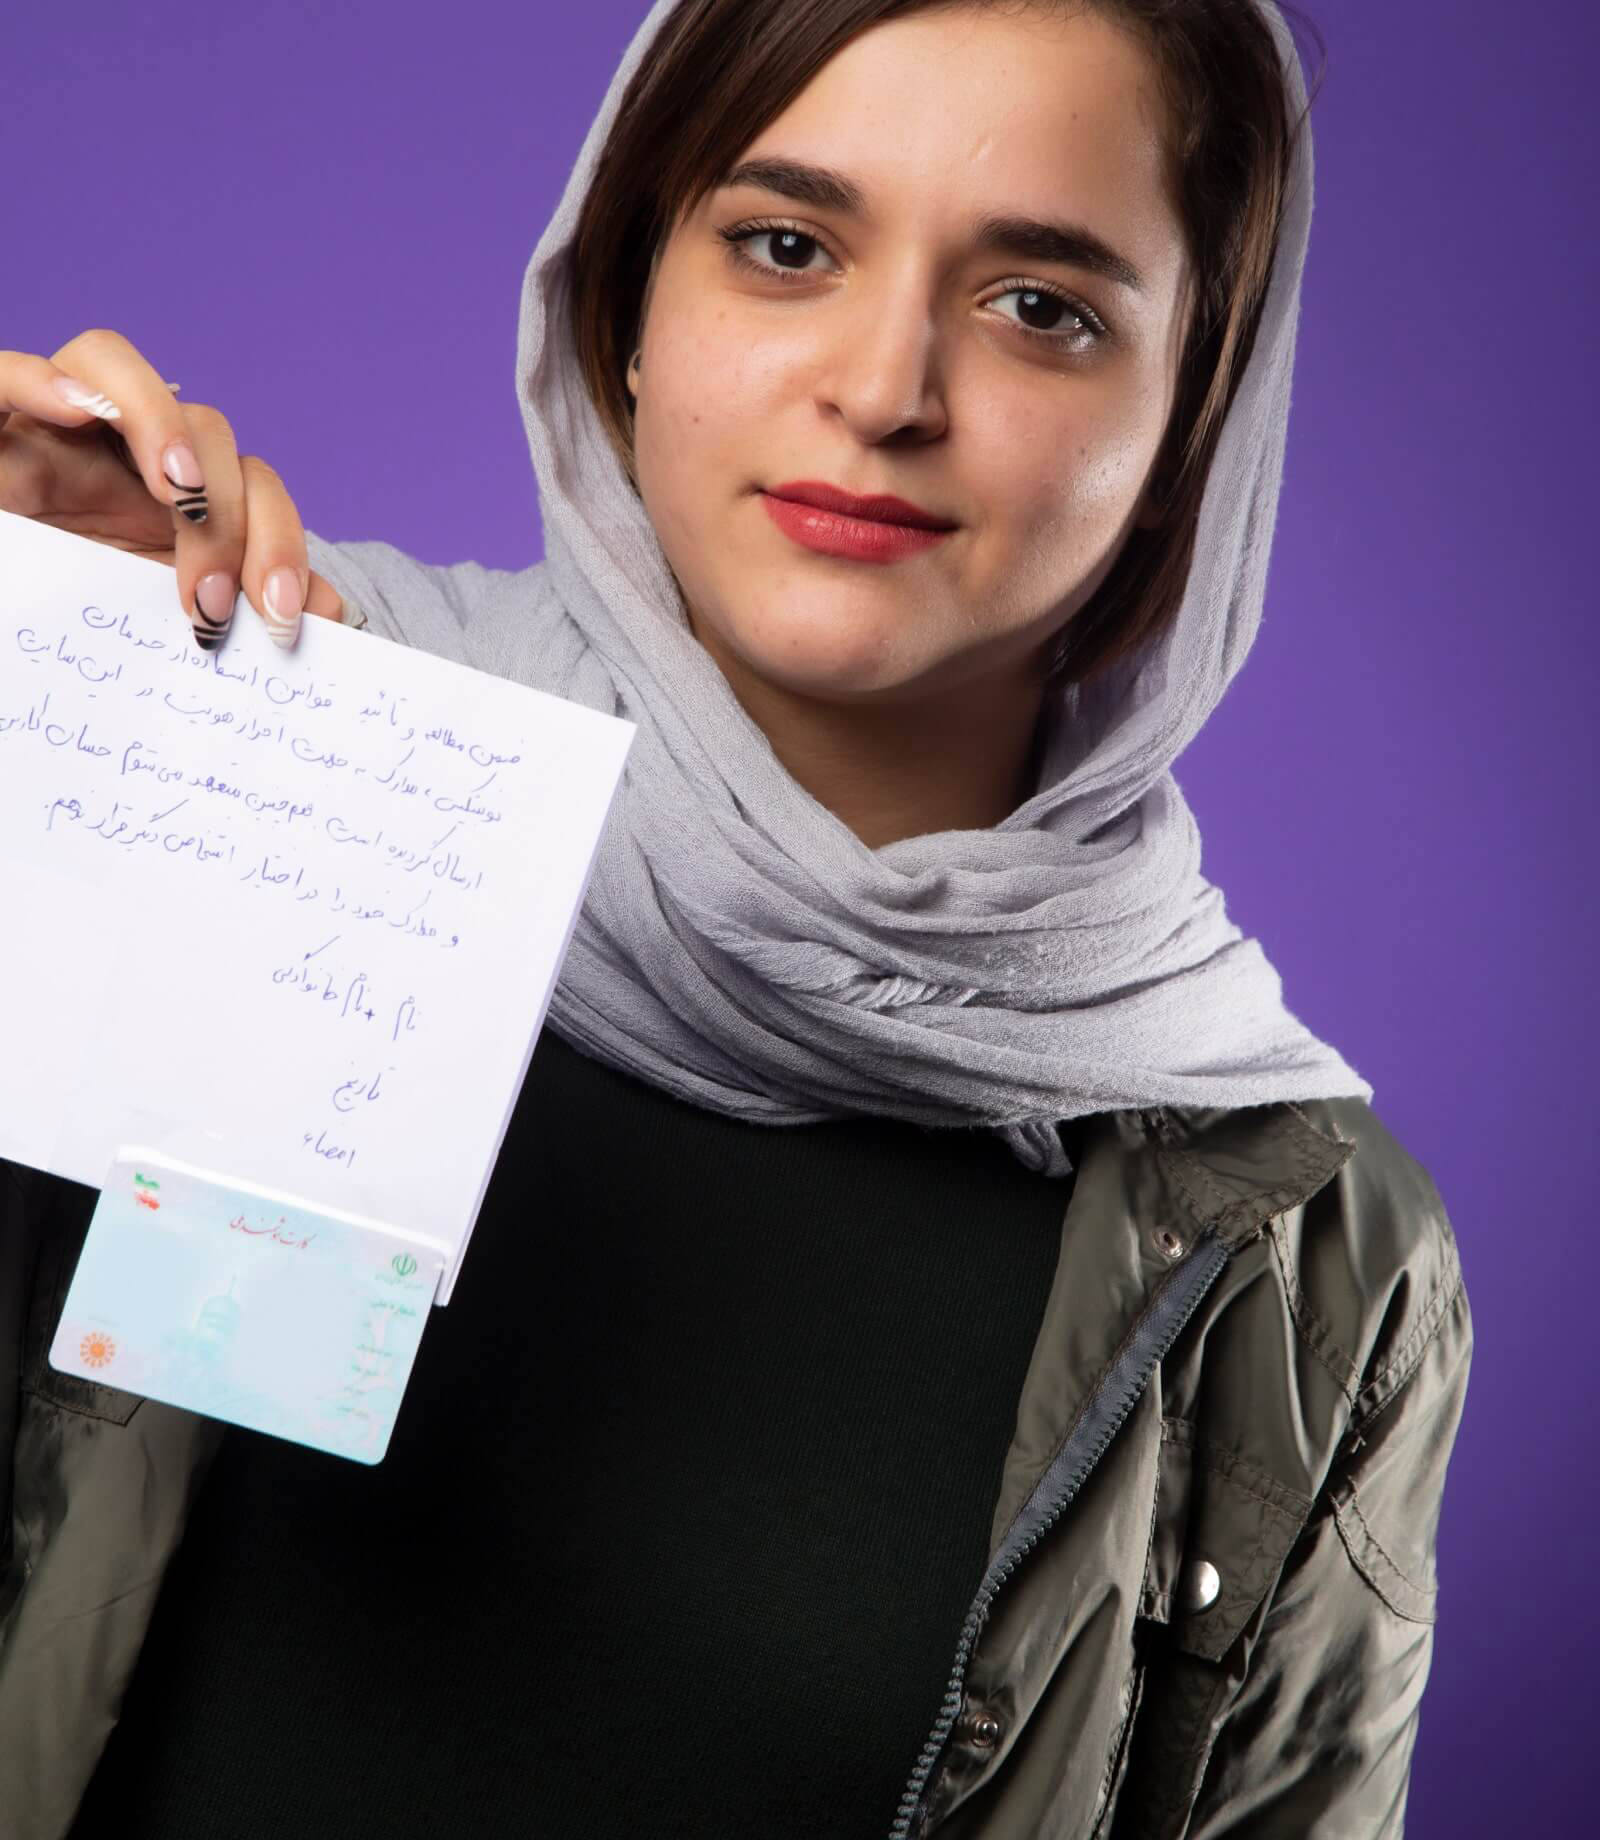 ضمن مطالعه و تأئید قوانین استفاده از خدمات
نوبیتکس، مدارک به جهت احراز هویت در این سایت
ارسال گردیده است. همچنین متعهد می شوم حساب کاربری
و مدارک خود را در اختیار اشخاص دیگر قرار ندهم.
نام + نام خانوادگی
تاریخ
امضاء
کارت هوشمند ملی
شماره ملی